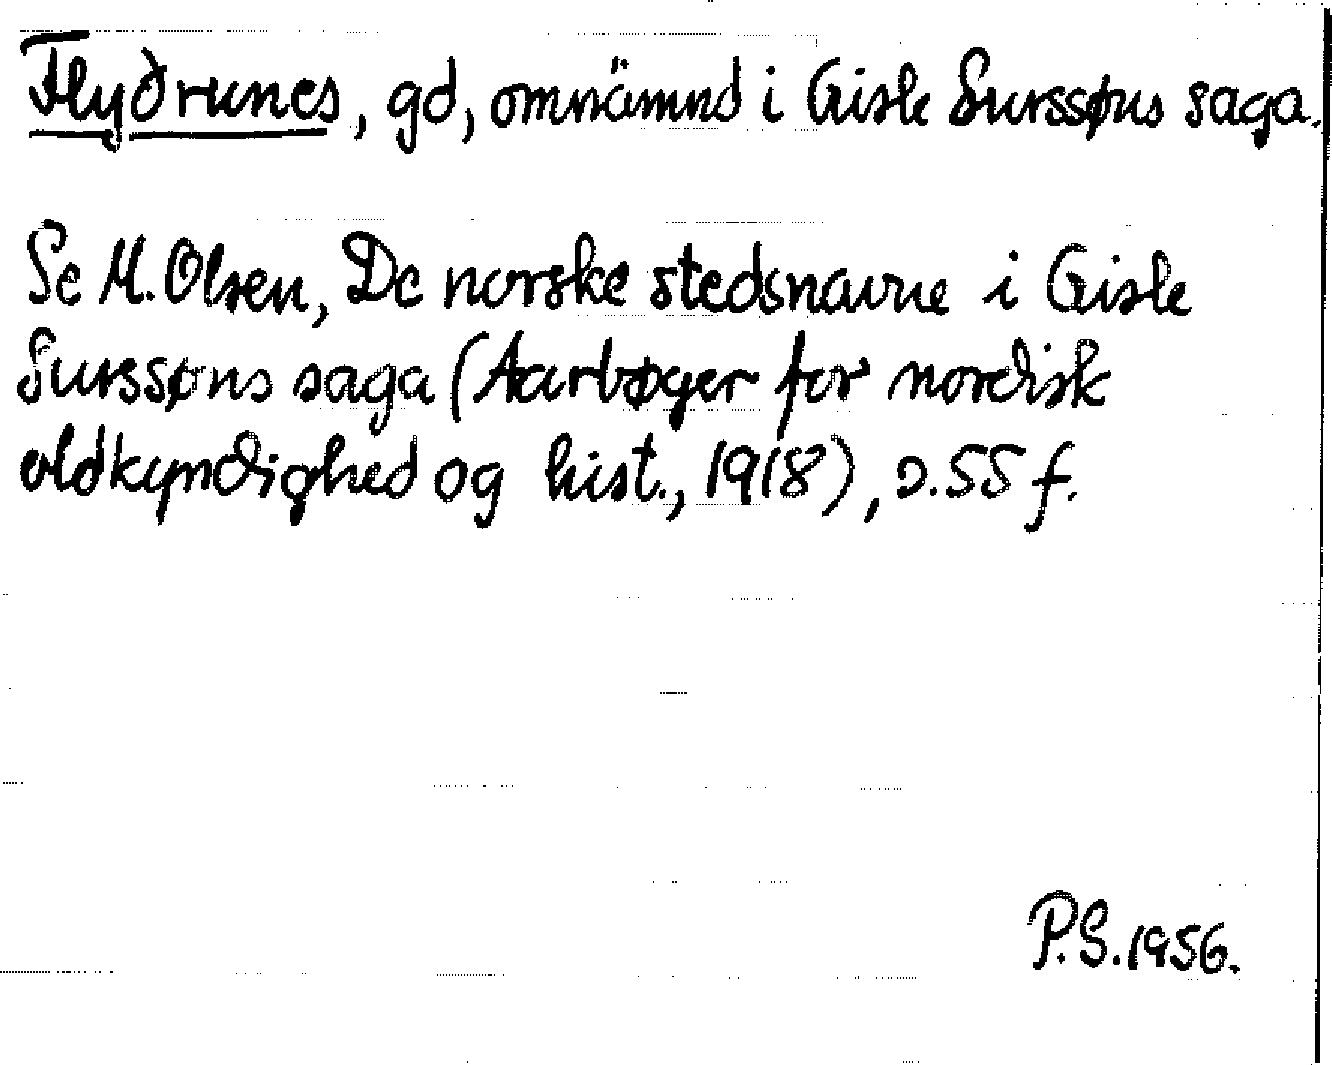 Flyðrunes, gd, omnämnd i Gisle Surssøns saga.
Se M. Olsen, De norske stedsnavne i Gisle
Surssøns saga (Aarbøger for nordisk
oldkyndighed og hist., 1918), s. 55 f.
P.S. 1956.